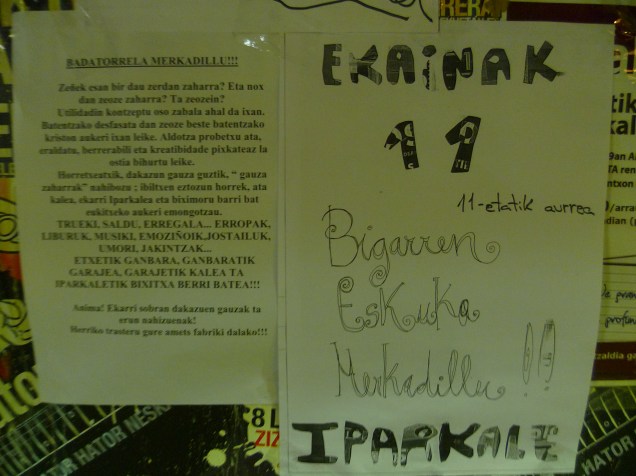 BADATORRELA MERKADILLU!!!
Zeñek esan bir dan zerdan zaharra? Eta nox
dan zeoze zaharra? Ta zeozein?
Utilidadin kontzeptu oso zabala ahal da ixan.
Batentzako desfasata dan zeoze beste batentzako
kriston aukeri ixan leike. Aldotza probetxu ata,
eraldatu, berrerabili eta kreatibidade pixkateaz la
ostia bihurtu leike.
Horretxeatxik, dakazun gauza guztik, " gauza
zaharrak" nahibozu ; ibiltxen eztozun horrek, ata
kalea, ekarri Iparkalea eta biximoru barri bat
eukitxeko aukeri emongotzau.
TRUEKI, SALDU, ERREGALA... ERROPAK,
LIBURUK, MUSIKI, EMOZIÑOIK,JOSTAILUK,
UMORI, JAKINTZAK...
ETXETIK GANBARA, GANBARATIK
GARAJEA, GARAJETIK KALEA TA
IPARKALETIK BIXITXA BERRI BATEA!!!
Anima! Ekarri sobran dakazuen gauzak ta
erun nahizuenak!
Herriko trasteru gure amets fabriki dalako!!!
EKAINAK
11
11-etatik aurrea
Bigarren
Eskuko
Merkadillu!!
IPARKALE
HATOR HATOR NESK
8
ZIZ